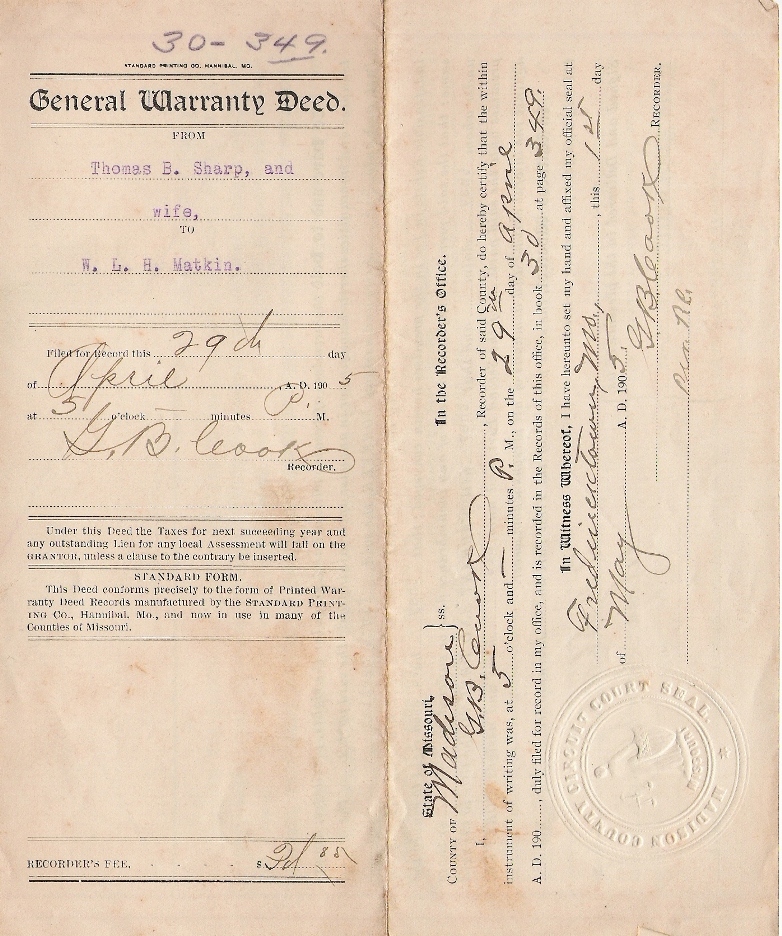 30-349.
STANDARD PRINTING CO. HANNIBAL, MO.
General Warranty Deed.
FROM
Thomas B. Sharp, and
wife,
TO
W. L. H. Matkin.
Filed for Record this 29th day
of April A. D. 190 5
at 5 o'clock — minutes P. M.
G. B. Cook
Recorder.
Under this Deed the Taxes for next succeeding year and
any outstanding Lien for any local Assessment will fall on the
GRANTOR, unless a clause to the contrary be inserted.
STANDARD FORM.
This Deed conforms precisely to the form of Printed War-
ranty Deed Records manufactured by the STANDARD PRINT-
ING CO., Hannibal, Mo., and now in use in many of the
Counties of Missouri.
RECORDER'S FEE, $
State of Missouri,
COUNTY OF Madison } ss. In the Recorder's Office.
I, G. B. Cook, Recorder of said County, do hereby certify that the within
instrument of writing was, at 5 o'clock and — minutes P. M., on the 29th day of April
A. D. 190, duly filed for record in my office, and is recorded in the Records of this office, in book 30 at page 349.
In Witness Whereof, I have hereunto set my hand and affixed my official seal at
Fredericktown, Mo., this 1st day
of May A. D. 1905.
G B Cook RECORDER.
MADISON COUNTY CIRCUIT COURT SEAL.
MISSOURI